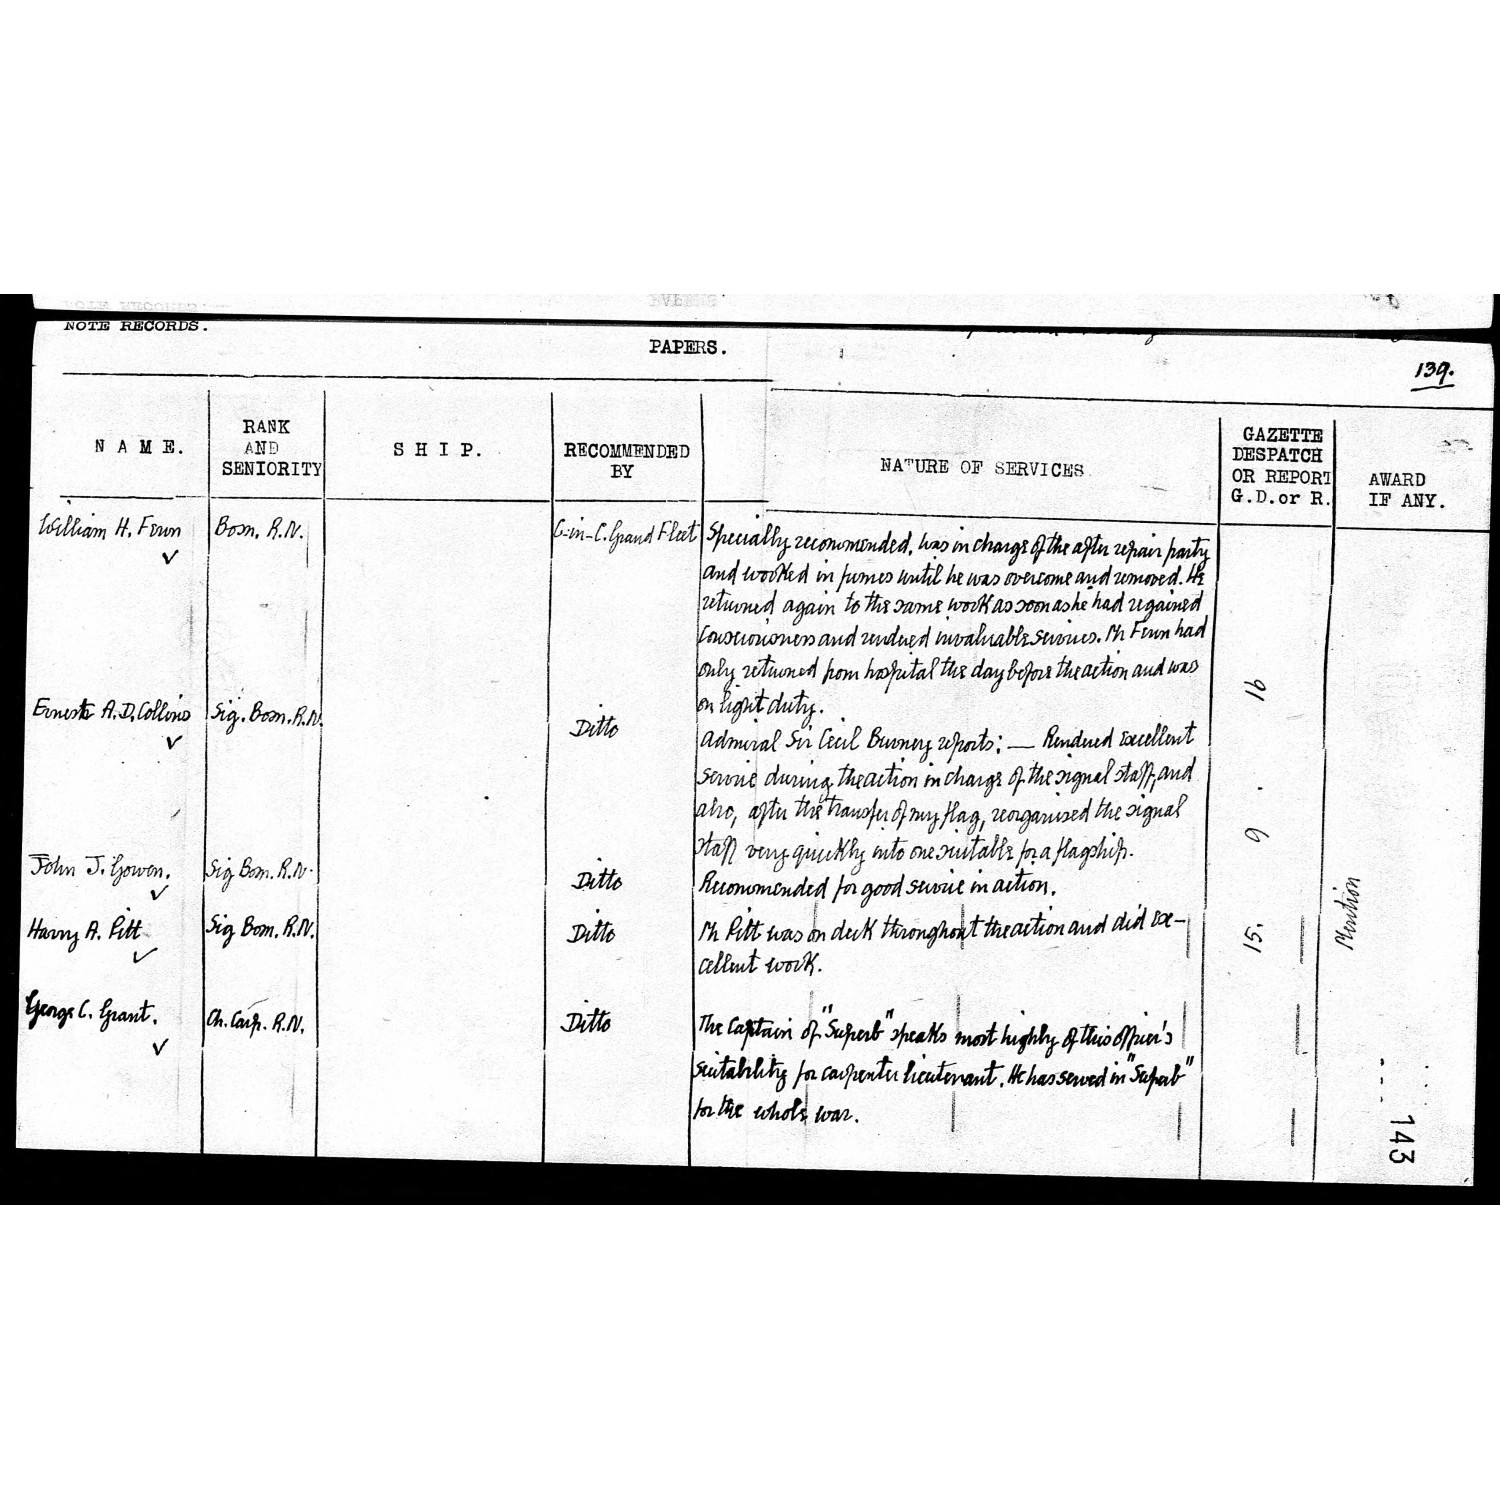 NOTE RECORDS.
PAPERS.
139.
NAME.
RANK
AND
SENIORITY
SHIP.
RECOMMENDED
BY
NATURE OF SERVICES
GAZETTE
DESPATCH
OR REPORT
G.D.or R.
AWARD
IF ANY.
William H. Fenn
Bosn. R.N.
C-in-C. Grand Fleet
Specially recommended. Was in charge of the after repair party
and worked in fumes until he was overcome and removed. He
returned again to the same work as soon as he had regained
consciousness and rendered invaluable services. Mr Fenn had
only returned from hospital the day before the action and was
on light duty.
Ernest A.D. Collins
Sig. Bosn. R.N.
Ditto
Admiral Sir Cecil Burney reports: — Rendered excellent
service during the action in charge of the signal staff, and
also, after the transfer of my flag, reorganised the signal
staff very quickly into one suitable for a flagship.
John J. Gowen.
Sig Bosn. R.N.
Ditto
Recommended for good service in action.
Harry A. Pitt
Sig Bosn. R.N.
Ditto
Mr Pitt was on deck throughout the action and did ex-
cellent work.
George C. Grant.
Ch. Carp. R.N.
Ditto
The Captain of "Superb" speaks most highly of this officer's
suitability for carpenter lieutenant. He has served in "Superb"
for the whole war.
15. 9 . 16
Mention
143